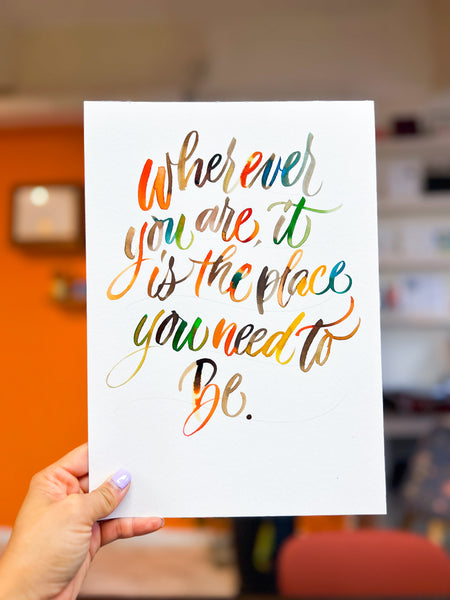 Wherever
you are, it
is the place
you need to
Be.